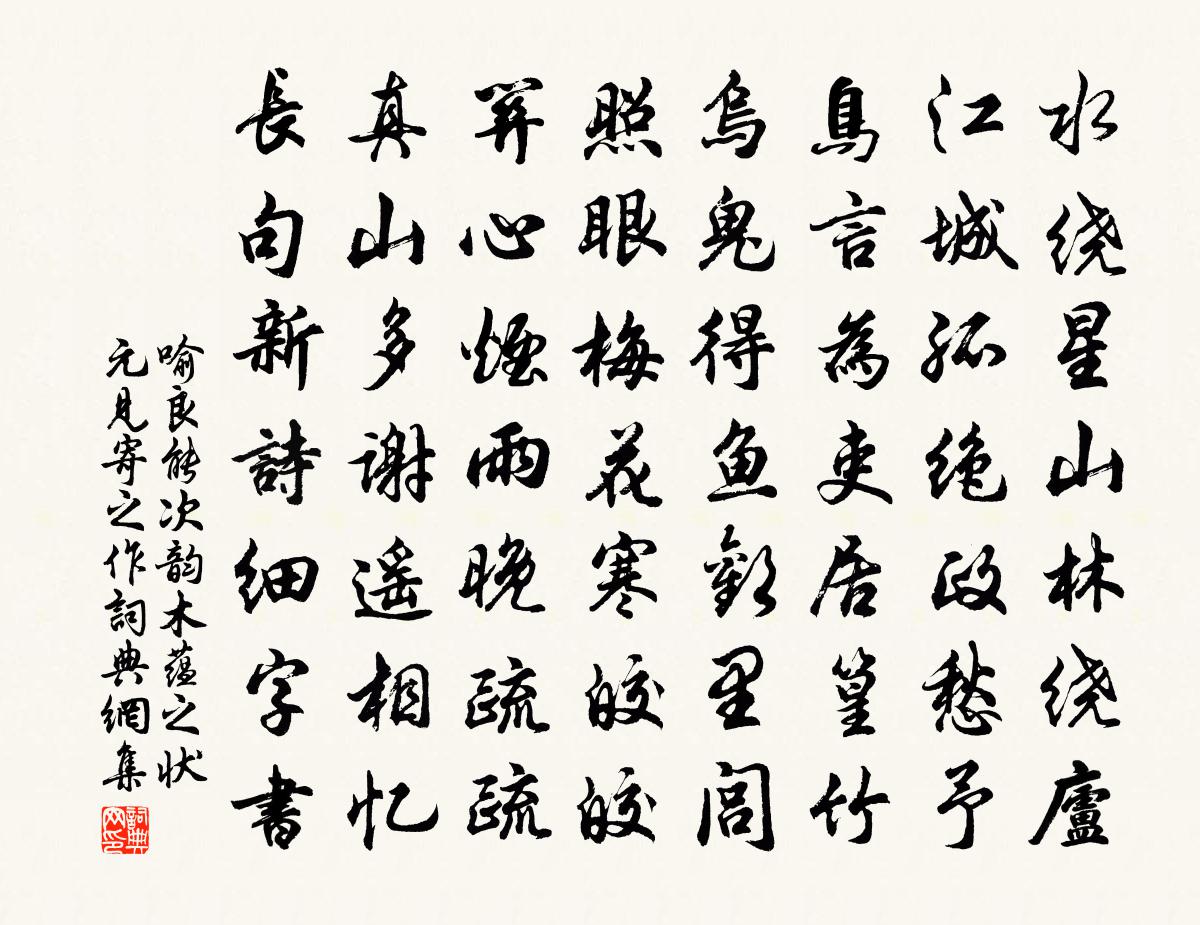 水绕星山林绕廬
江城孤绝政愁予
鳥言為吏居篁竹
烏鬼得鱼歡里閭
照眼梅花寒皎皎
關心煙雨晚疏疏
真山多謝遥相忆
長句新詩細字書
喻良能次韵木蕴之状
元見寄之作詞典網集
詞典网印